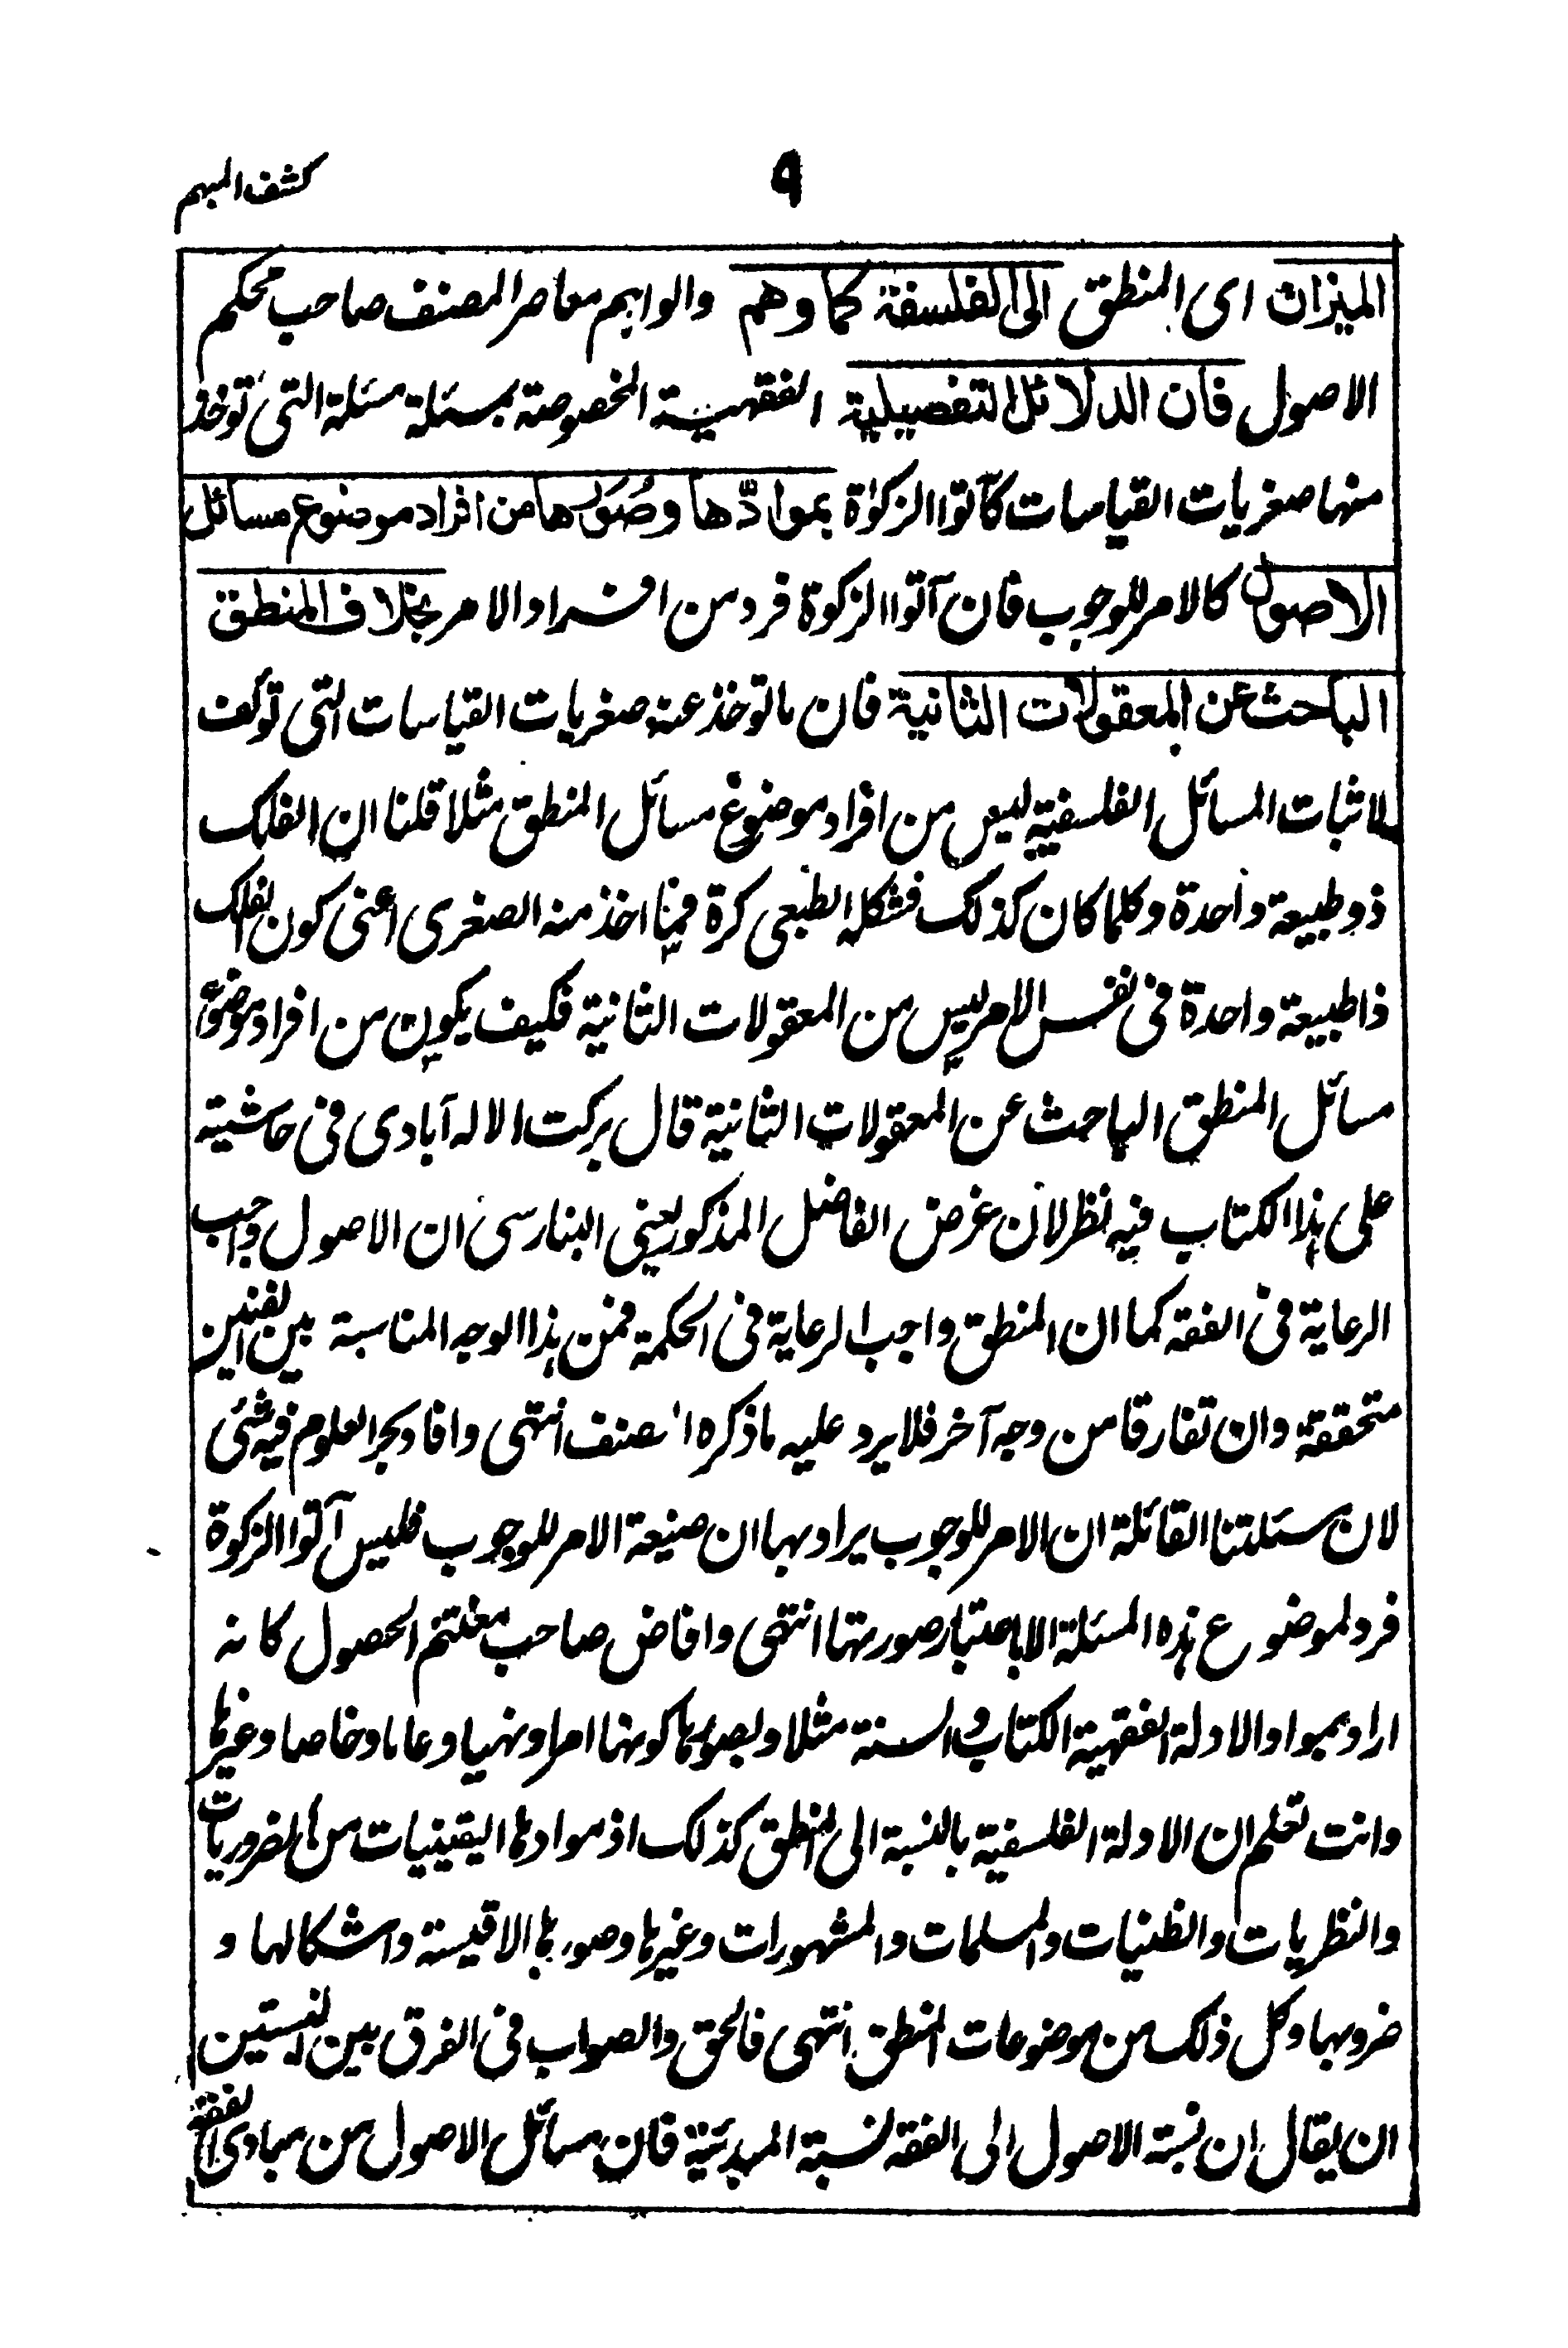 كشف المبهم
٩
الميزان اى المنطق الى الفلسفة كما وهم والواہم معاصر المصنف صاحب محكم
الاصول فان الدلائل التفصيلية الفقهية المخصوصة بمسئلة مسئلة التى توخذ
منها صغريات القياسات كآتوا الزكوٰة بموادّها وصُوَرها من افراد موضوع مسائل
الاصول كالامر للوجوب فان آتوا الزكوة فرد من افراد الامر بخلاف المنطق
الباحث عن المعقولات الثانية فان ما توخذ عنه صغريات القياسات التى تؤلف
لاثبات المسائل الفلسفية ليس من افراد موضوع مسائل المنطق مثلا قلنا ان الفلك
ذو طبيعة واحدة وكلما كان كذلك فشكله الطبعى كرة فمنا اخذ منه الصغرى اعنى كون الفلك
ذا طبيعة واحدة فى نفس الامر ليس من المعقولات الثانية فكيف يكون من افراد موضوع
مسائل المنطق الباحث عن المعقولات الثانية قال بركت الاله آبادى فى حاشية
على ہذا الكتاب فيه نظر لان غرض الفاضل المذكور يعنى البنارسى ان الاصول واجب
الرعاية فى الفقه كما ان المنطق واجب الرعاية فى الحكمة فمن ہذا الوجه المناسبة بين الفنين
متحققة وان تفارقا من وجه آخر فلا يرد عليه ما ذكره المصنف انتهى وافاد بحر العلوم فيه شئ
لان مسئلتنا القائلة ان الامر للوجوب يراد بها ان صيغة الامر للوجوب فليس آتوا الزكوة
فرد لموضوع ہذه المسئلة الا باعتبار صورتها انتهى وافاض صاحب مغتنم الحصول كانه
اراد بمواد الادلة الفقهية الكتاب والسنة مثلا وبصورہا كونها امرا ونهيا وعاما وخاصا وغيرہا
وانت تعلم ان الادلة الفلسفية بالنسبة الى المنطق كذلك اذ موادہا اليقينيات من الضروريات
والنظريات والظنيات والمسلمات والمشهورات وغيرہا وصورہا الاقيسة واشكالها و
ضروبها وكل ذلك من موضوعات المنطق انتهى فالحق والصواب فى الفرق بين النسبتين
ان يقال ان نسبة الاصول الى الفقه نسبة المبدئية فان مسائل الاصول من مبادى الفقه